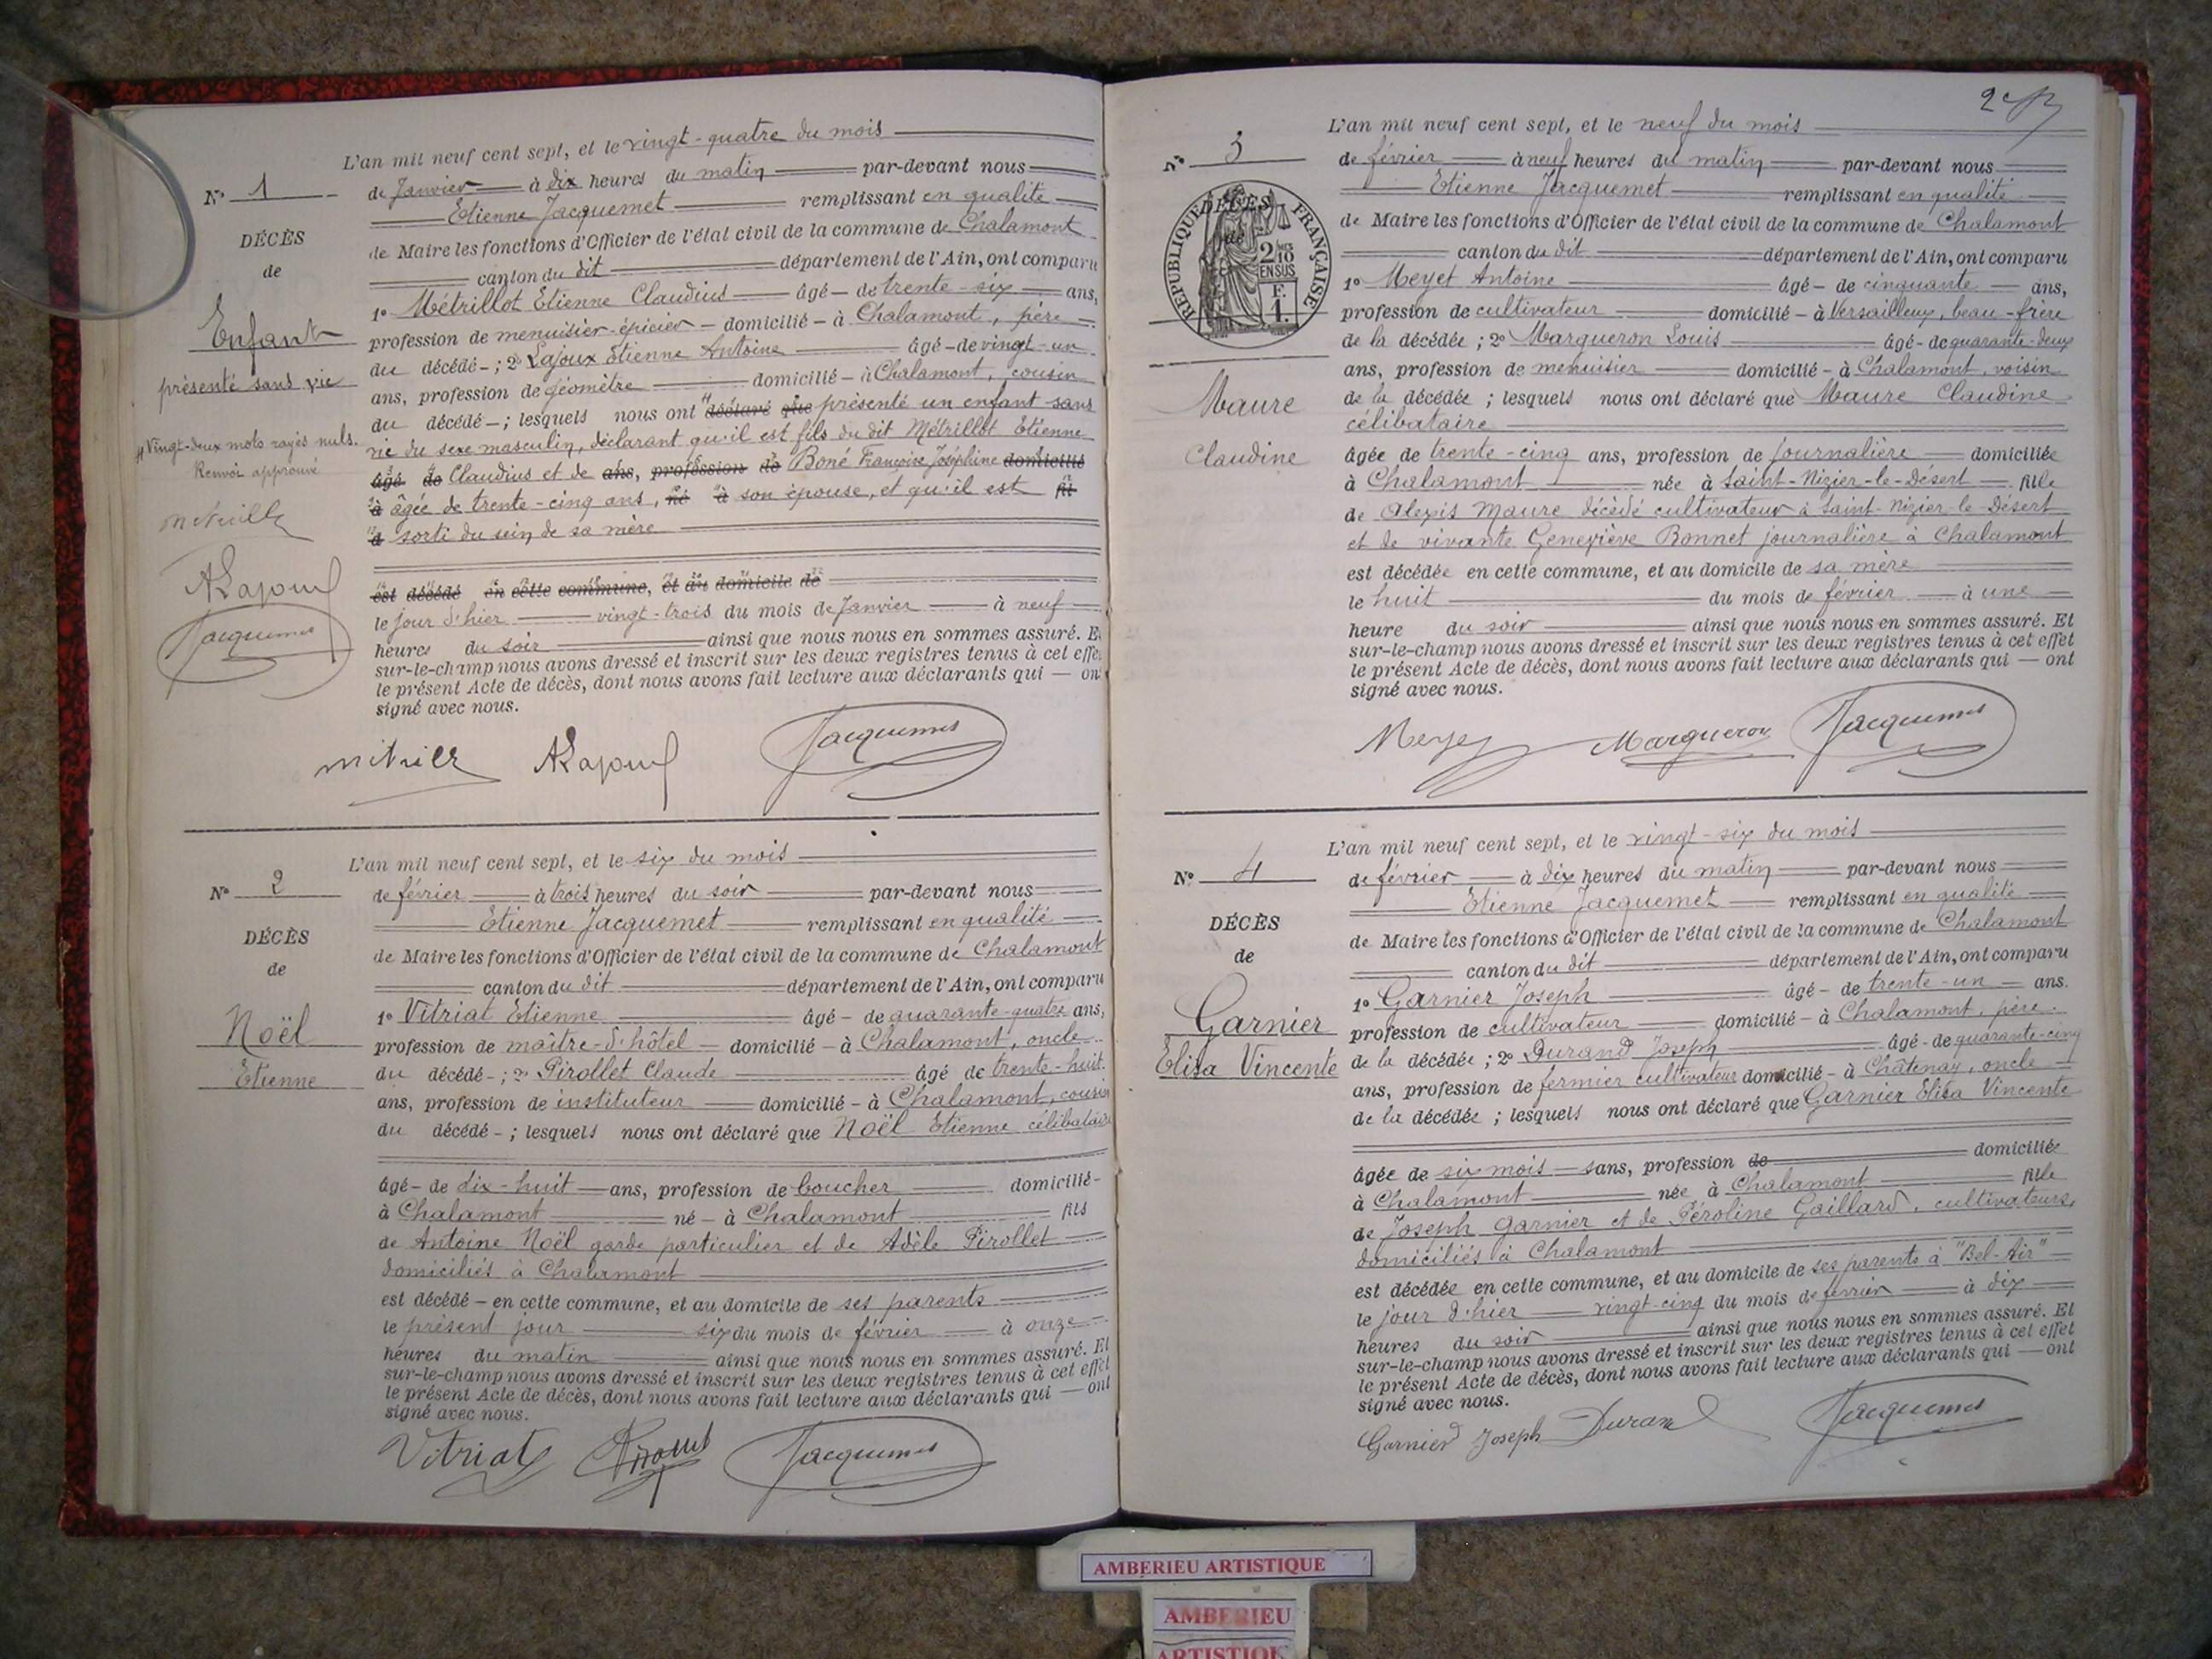 L'an mil neuf cent sept, et le vingt-quatre du mois
N° 1
de Janvier à dix heures du matin par-devant nous
Etienne Jacquemet remplissant en qualité
de Maire les fonctions d'Officier de l'état civil de la commune de Chalamont
canton du dit département de l'Ain, ont comparu
1° Métrillot Etienne Claudius âgé de trente-six ans,
profession de menuisier-épicier domicilié à Chalamont, père
du décédé ; 2° Lajoux Etienne Antoine âgé de vingt-un
ans, profession de géomètre domicilié à Chalamont, cousin
du décédé ; lesquels nous ont déclaré que présenté un enfant sans
vie du sexe masculin, déclarant qu'il est fils du dit Métrillot Etienne
âgé de Claudius et de ans, profession de Boné Françoise Joséphine domicilié
à âgée de trente-cinq ans, né à son épouse, et qu'il est fils
de sorti du sein de sa mère
est décédé en cette commune, et au domicile de
le jour d'hier vingt-trois du mois de Janvier à neuf
heures du soir ainsi que nous nous en sommes assuré. E
sur-le-champ nous avons dressé et inscrit sur les deux registres tenus à cet effe
le présent Acte de décès, dont nous avons fait lecture aux déclarants qui — on
signé avec nous.
DÉCÈS
de
Enfant
présenté sans vie
Vingt-deux mots rayés nuls.
Renvoi approuvé
ALajoux
Jacquemet
ALajoux Jacquemet
L'an mil neuf cent sept, et le six du mois
N° 2
de février à trois heures du soir par-devant nous
Etienne Jacquemet remplissant en qualité
de Maire les fonctions d'Officier de l'état civil de la commune de Chalamont
canton du dit département de l'Ain, ont comparu
1° Vitriat Etienne âgé de quarante-quatre ans,
profession de maître-d'hôtel domicilié à Chalamont, oncle
du décédé ; 2° Pirollet Claude âgé de trente-huit
ans, profession de instituteur domicilié à Chalamont, cousin
du décédé ; lesquels nous ont déclaré que Noël Etienne célibataire
âgé de dix-huit ans, profession de boucher domicilié
à Chalamont né à Chalamont fils
de Antoine Noël garde particulier et de Adèle Pirollet
domiciliés à Chalamont
est décédé en cette commune, et au domicile de ses parents
le présent jour six du mois de février à onze
heures du matin ainsi que nous nous en sommes assuré. Et
sur-le-champ nous avons dressé et inscrit sur les deux registres tenus à cet effet
le présent Acte de décès, dont nous avons fait lecture aux déclarants qui — ont
signé avec nous.
DÉCÈS
de
Noël
Etienne
Vitriat Jacquemet
L'an mil neuf cent sept, et le neuf du mois
N° 3
de février à neuf heures du matin par-devant nous
Etienne Jacquemet remplissant en qualité
de Maire les fonctions d'Officier de l'état civil de la commune de Chalamont
canton du dit département de l'Ain, ont comparu
1° Meyet Antoine âgé de cinquante ans,
profession de cultivateur domicilié à Versailleux, beau-frère
de la décédée ; 2° Margueron Louis âgé de quarante-deux
ans, profession de menuisier domicilié à Chalamont, voisin
de la décédée ; lesquels nous ont déclaré que Maure Claudine
célibataire
âgée de trente-cinq ans, profession de journalière domiciliée
à Chalamont née à Saint-Nizier-le-Désert fille
de Alexis Maure décédé cultivateur à Saint-Nizier-le-Désert
et de vivante Geneviève Bonnet journalière à Chalamont
est décédée en cette commune, et au domicile de sa mère
le huit du mois de février à une
heure du soir ainsi que nous nous en sommes assuré. Et
sur-le-champ nous avons dressé et inscrit sur les deux registres tenus à cet effet
le présent Acte de décès, dont nous avons fait lecture aux déclarants qui — ont
signé avec nous.
RÉPUBLIQUE FRANÇAISE
DÉCÈS
de
2/10 EN SUS
1 F.
Maure
Claudine
Meyet Margueron Jacquemet
L'an mil neuf cent sept, et le vingt-six du mois
N° 4
de février à dix heures du matin par-devant nous
Etienne Jacquemet remplissant en qualité
de Maire les fonctions d'Officier de l'état civil de la commune de Chalamont
canton du dit département de l'Ain, ont comparu
1° Garnier Joseph âgé de trente-un ans.
profession de cultivateur domicilié à Chalamont, père
de la décédée ; 2° Durand Joseph âgé de quarante-cinq
ans, profession de fermier cultivateur domicilié à Châtenay, oncle
de la décédée ; lesquels nous ont déclaré que Garnier Elisa Vincente
âgée de six mois sans, profession de domiciliée
à Chalamont née à Chalamont fille
de Joseph Garnier et de Péroline Gaillard, cultivateurs,
domiciliés à Chalamont
est décédée en cette commune, et au domicile de ses parents à "Bel-Air"
le jour d'hier vingt-cinq du mois de février à dix
heures du soir ainsi que nous nous en sommes assuré. Et
sur-le-champ nous avons dressé et inscrit sur les deux registres tenus à cet effet
le présent Acte de décès, dont nous avons fait lecture aux déclarants qui — ont
signé avec nous.
DÉCÈS
de
Garnier
Elisa Vincente
Garnier Joseph Durand Jacquemet
AMBERIEU ARTISTIQUE
AMBERIEU
ARTISTIQUE